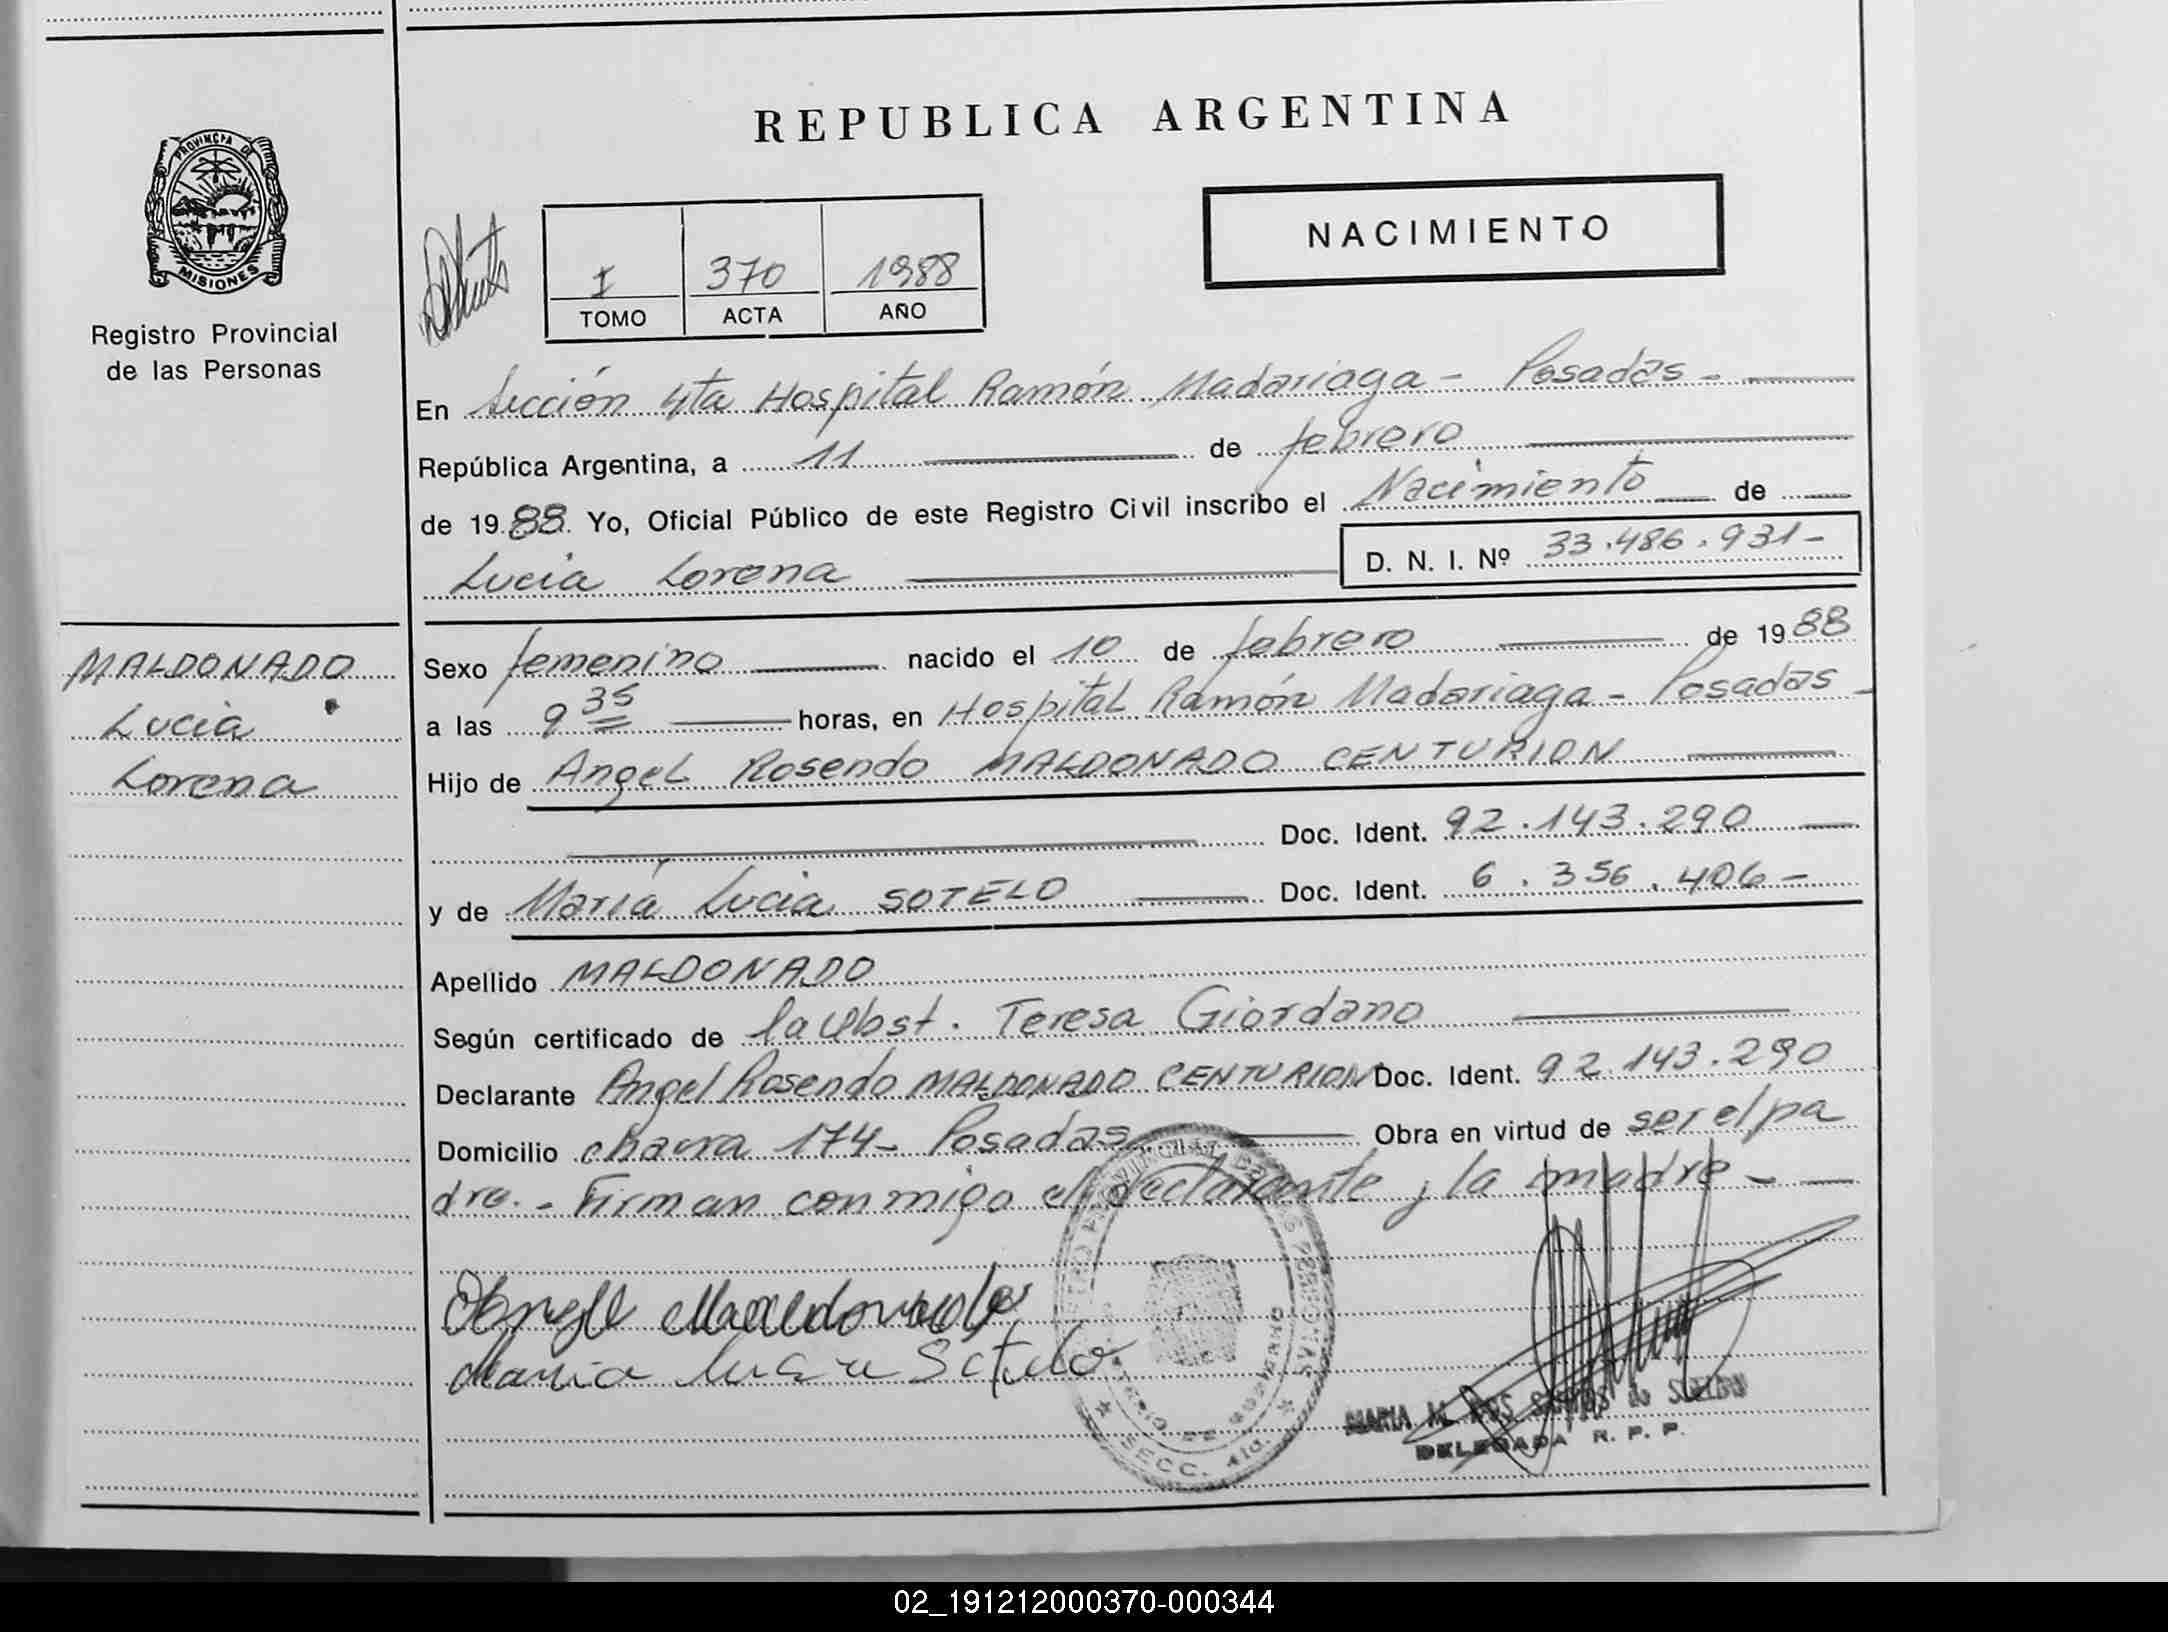 REPUBLICA ARGENTINA
PROVINCIA DE
MISIONES
Registro Provincial
de las Personas
NACIMIENTO
I 370 1988
TOMO ACTA AÑO
En Sección 4ta Hospital Ramón Madariaga - Posadas -
República Argentina, a 11 de febrero
de 1988. Yo, Oficial Público de este Registro Civil inscribo el Nacimiento de
Lucia Lorena D. N. I. Nº 33.486.931-
MALDONADO
Lucia
Lorena
Sexo femenino nacido el 10 de febrero de 1988
a las 9 35 horas, en Hospital Ramón Madariaga - Posadas -
Hijo de Angel Rosendo MALDONADO CENTURION
Doc. Ident. 92.143.290
y de María Lucia SOTELO Doc. Ident. 6.356.406-
Apellido MALDONADO
Según certificado de la Obst. Teresa Giordano
Declarante Angel Rosendo MALDONADO CENTURION Doc. Ident. 92.143.290
Domicilio chacra 174- Posadas Obra en virtud de ser el pa
dre.- Firman conmigo el declarante y la madre -
Angel Maldonado
Maria Lucia Sotelo
SECC. 4ta.
MARIA M. DOS SANTOS de
DELEGADA R. P. P.
02_191212000370-000344